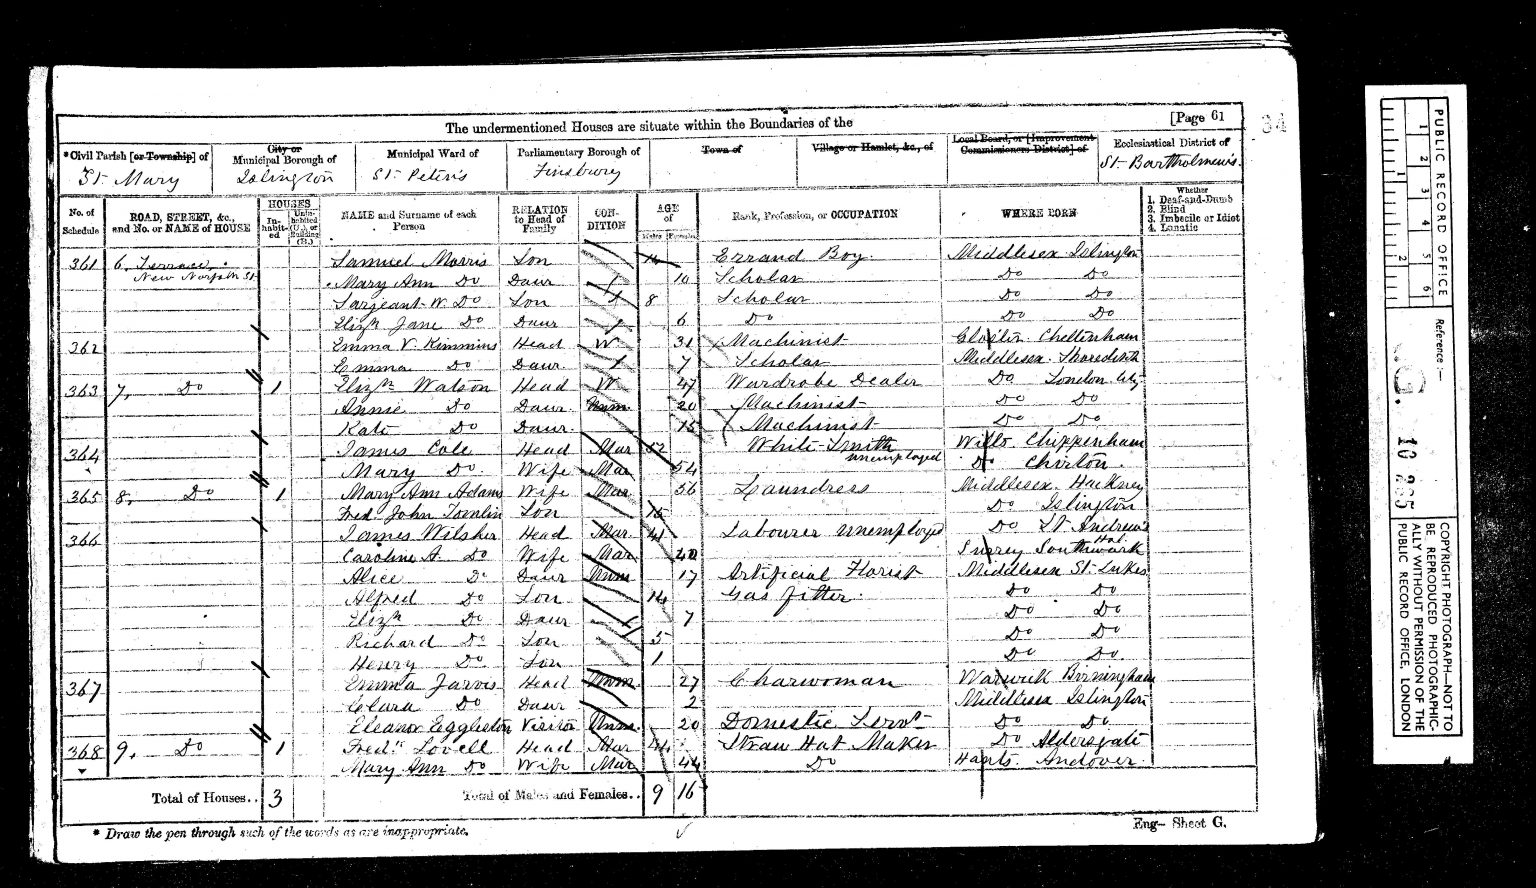 The undermentioned Houses are situate within the Boundaries of the [Page 61
34
*Civil Parish [or Township] of St. Mary
City or Municipal Borough of Islington
Municipal Ward of St. Peter's
Parliamentary Borough of Finsbury
Town of
Village or Hamlet, &c., of
Local Board, or [Improvement Commissioners District] of
Ecclesiastical District of St. Bartholmew's.
No. of Schedule
ROAD, STREET, &c., and No. or NAME of HOUSE
HOUSES
Inhabited
Uninhabited (U.), or Building (B.)
NAME and Surname of each Person
RELATION to Head of Family
CONDITION
AGE of
Males Females
Rank, Profession, or OCCUPATION
WHERE BORN
Whether
1. Deaf-and-Dumb
2. Blind
3. Imbecile or Idiot
4. Lunatic
361 6, Terrace, New Norfolk St Samuel Morris Son 14 Errand Boy. Middlesex Islington
Mary Ann Do Daur 10 Scholar Do Do
Sargeant W. Do Son 8 Scholar Do Do
Elizh. Jane Do Daur 6 Do Do Do
362 Emma V. Kimmins Head W 31 Machinist Gloster Cheltenham
Emma Do Daur. 7 Scholar Middlesex Shoreditch
363 7, Do 1 Elizth Watson Head W. 47 Wardrobe Dealer Do London City
Annie Do Daur. Unm. 20 Machinist Do Do
Kate Do Daur. 15 Machinist Do Do
364 James Cole Head Mar 52 White-Smith unemployed Wilts Chippenham
Mary Do Wife Mar 54 Do Chirton.
365 8, Do 1 Mary Ann Adams Wife Mar 56 Laundress Middlesex. Hackney
Fred. John Tomlin Son 15 Do Islington
366 James Wilsher Head Mar. 41 Labourer unemployed Do St. Andrews Hol.
Caroline A. Do Wife Mar 40 Surrey Southwark
Alice Do Daur Unm 17 Artificial Florist Middlesex St. Lukes
Alfred Do Son 14 Gas fitter. Do Do
Elizh Do Daur 7 Do Do
Richard Do Son 5 Do Do
Henry Do Son 1 Do Do.
367 Emma Jarvis Head Unm 27 Charwoman Warwick Birmingham
Clara Do Daur 2 Middlesex Islington
Eleanor Eggleston Visitor Unm. 20 Domestic Servt. Do Do
368 9, Do 1 Fredk. Lovell Head Mar 44 Straw Hat Maker Do Aldersgate
Mary Ann Do Wife Mar 44 Do Hants. Andover.
Total of Houses.. 3 Total of Males and Females.. 9 16
* Draw the pen through such of the words as are inappropriate.
Eng- Sheet G.
PUBLIC RECORD OFFICE
1 2 3 4 5 6
1 2
Reference:-
COPYRIGHT PHOTOGRAPH-NOT TO BE REPRODUCED PHOTOGRAPHICALLY WITHOUT PERMISSION OF THE PUBLIC RECORD OFFICE, LONDON